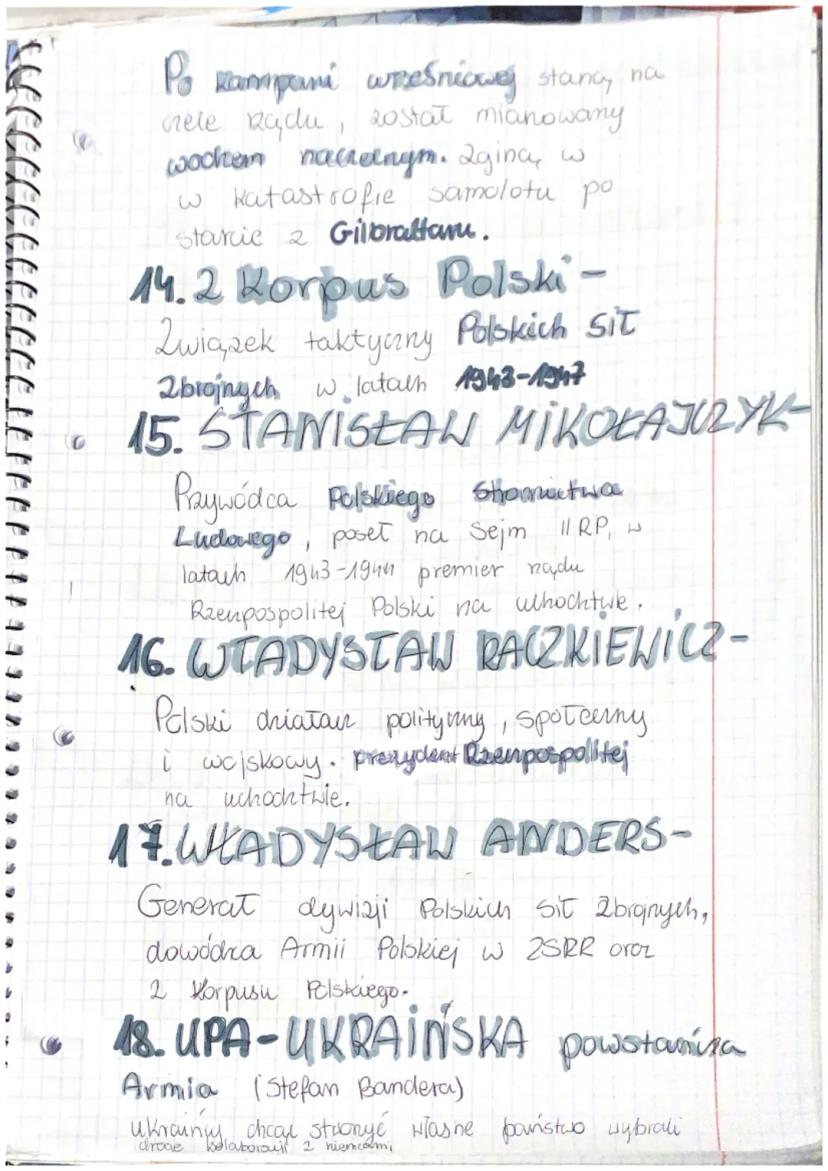 Po kampani wrześniowej staną na
czele rządu, został mianowany
wodzem naczelnym. Zginą w
w katastrofie samolotu po
starcie z Gilbraltaru.
14. 2 Korpus Polski -
Związek taktyczny Polskich Sił
Zbrojnych w latach 1943-1947
15. STANISŁAW MIKOŁAJCZYK-
Przywódca Polskiego Stronnictwa
Ludowego, poseł na Sejm II RP, w
latach 1943-1944 premier rządu
Rzeczpospolitej Polski na uchodctwie.
16. WŁADYSŁAW RACZKIEWICZ-
Polski działacz polityczny, społeczny
i wojskowy. prezydent Rzeczpospolitej
na uchodztwie.
17. WŁADYSŁAW ANDERS-
Generał dywizji Polskich Sił Zbrojnych,
dowódca Armii Polskiej w ZSRR oraz
2 Korpusu Polskiego.
18. UPA-UKRAIŃSKA powstańcza
Armia (Stefan Bandera)
ukraińcy chcąc stworzyć własne państwo wybrali
drogę kolaboracji z niemcami